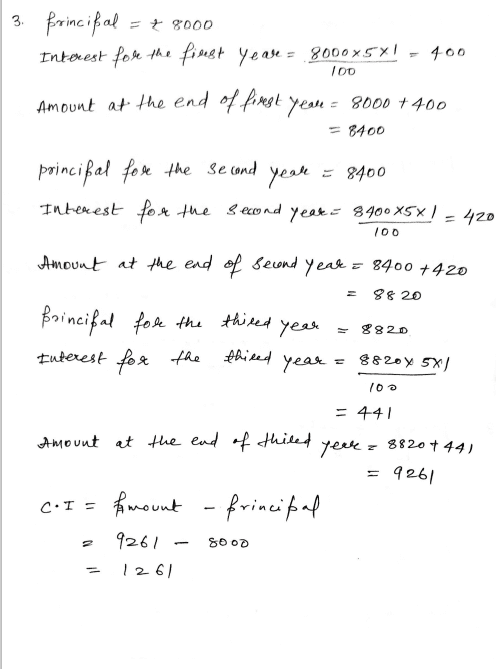 3. Principal = ₹ 8000
Interest for the first year = 8000×5×1 / 100 = 400
Amount at the end of first year = 8000 + 400
= 8400
principal for the second year = 8400
Interest for the second year = 8400×5×1 / 100 = 420
Amount at the end of second year = 8400 + 420
= 8820
Principal for the third year = 8820
Interest for the third year = 8820×5×1 / 100
= 441
Amount at the end of third year = 8820 + 441
= 9261
C.I = Amount - Principal
= 9261 - 8000
= 1261